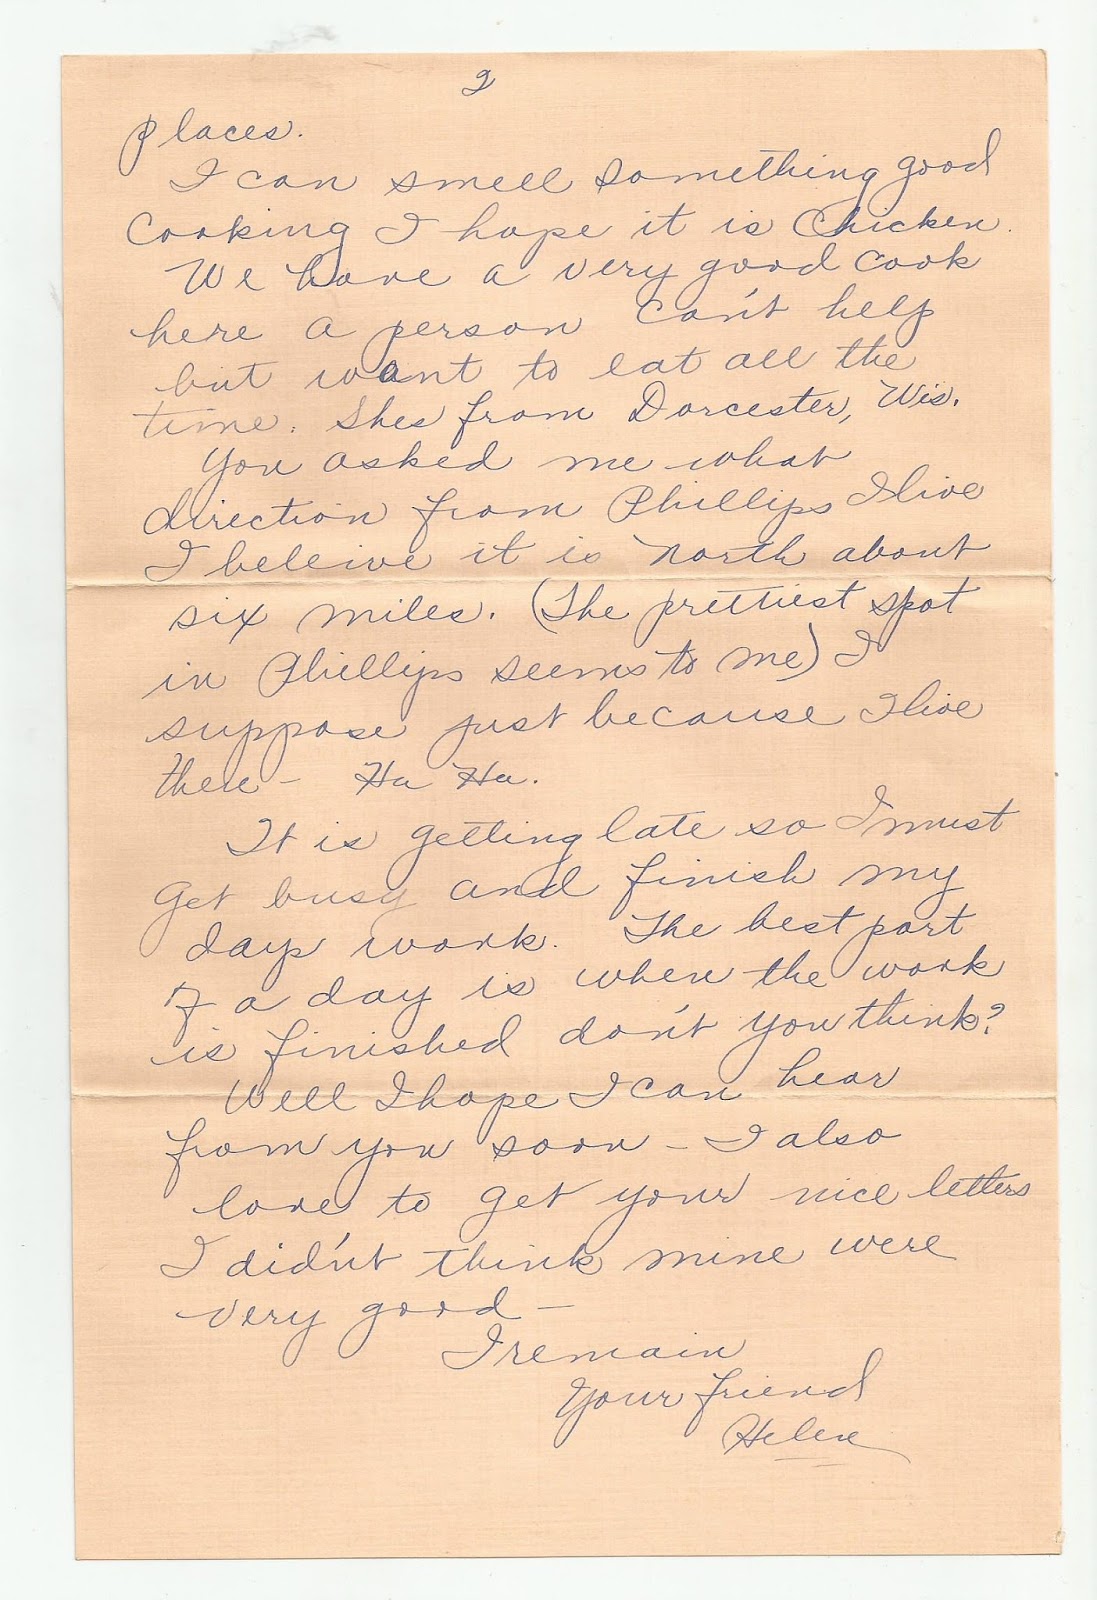 2
places.
I can smell something good
cooking I hope it is Chicken.
We have a very good cook
here a person can't help
but want to eat all the
time. Shes from Dorcester, Wis.
You asked me what
direction from Phillips I live
I beleive it is north about
six miles. (The prettiest spot
in Phillips seems to me) I
suppose just because I live
there - Ha Ha.
It is getting late so I must
get busy and finish my
days work. The best part
of a day is when the work
is finished don't you think?
Well I hope I can hear
from you soon - I also
love to get your nice letters
I did'nt think mine were
very good -
I remain
Your friend
Helen